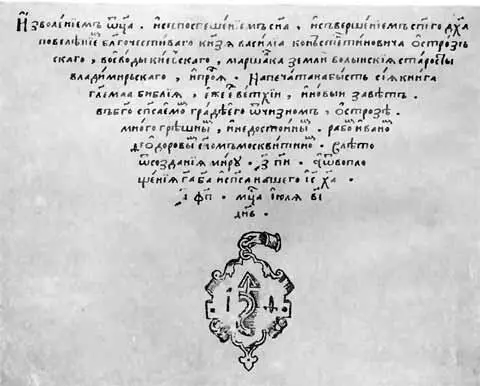 И҆зволенїемъ ѿц҃а . и҆споспѣшенїемъ сн҃а , и҆съвершенїемъ ст҃го дх҃а
повелѣнїе благочестиваго кнѧзѧ василїа констѧнтиновича острозъ
скаго , воеводы кїевъскаго , маршалка земли волынскїѧ старосты
владимирьскаго , и҆ прⷪ҇чаѧ . Напечатана бысть сїѧ книга
гл҃емаа библїѧ , ветхїи , и҆ новыи завѣтъ .
въ бг҃оспасаемомъ градѣ его ѿчизномъ , остроѕѣ .
многогрѣшныⷨ , и҆ недостоиныⷨ . рабоⷨ иваноⷨ
ѳеодоровыⷨ сн҃омъ , москвитиноⷨ . влѣто
ѿ созданїѧ миру . ҂з пи҃ . ѿ вопло
щенїѧ га҃ ба҃ и҆ сп҃са нашего іс҃ ха҃
҂а фп҃ . мц҃а іюлѧ ві҃
днѧ .
І Ѳ